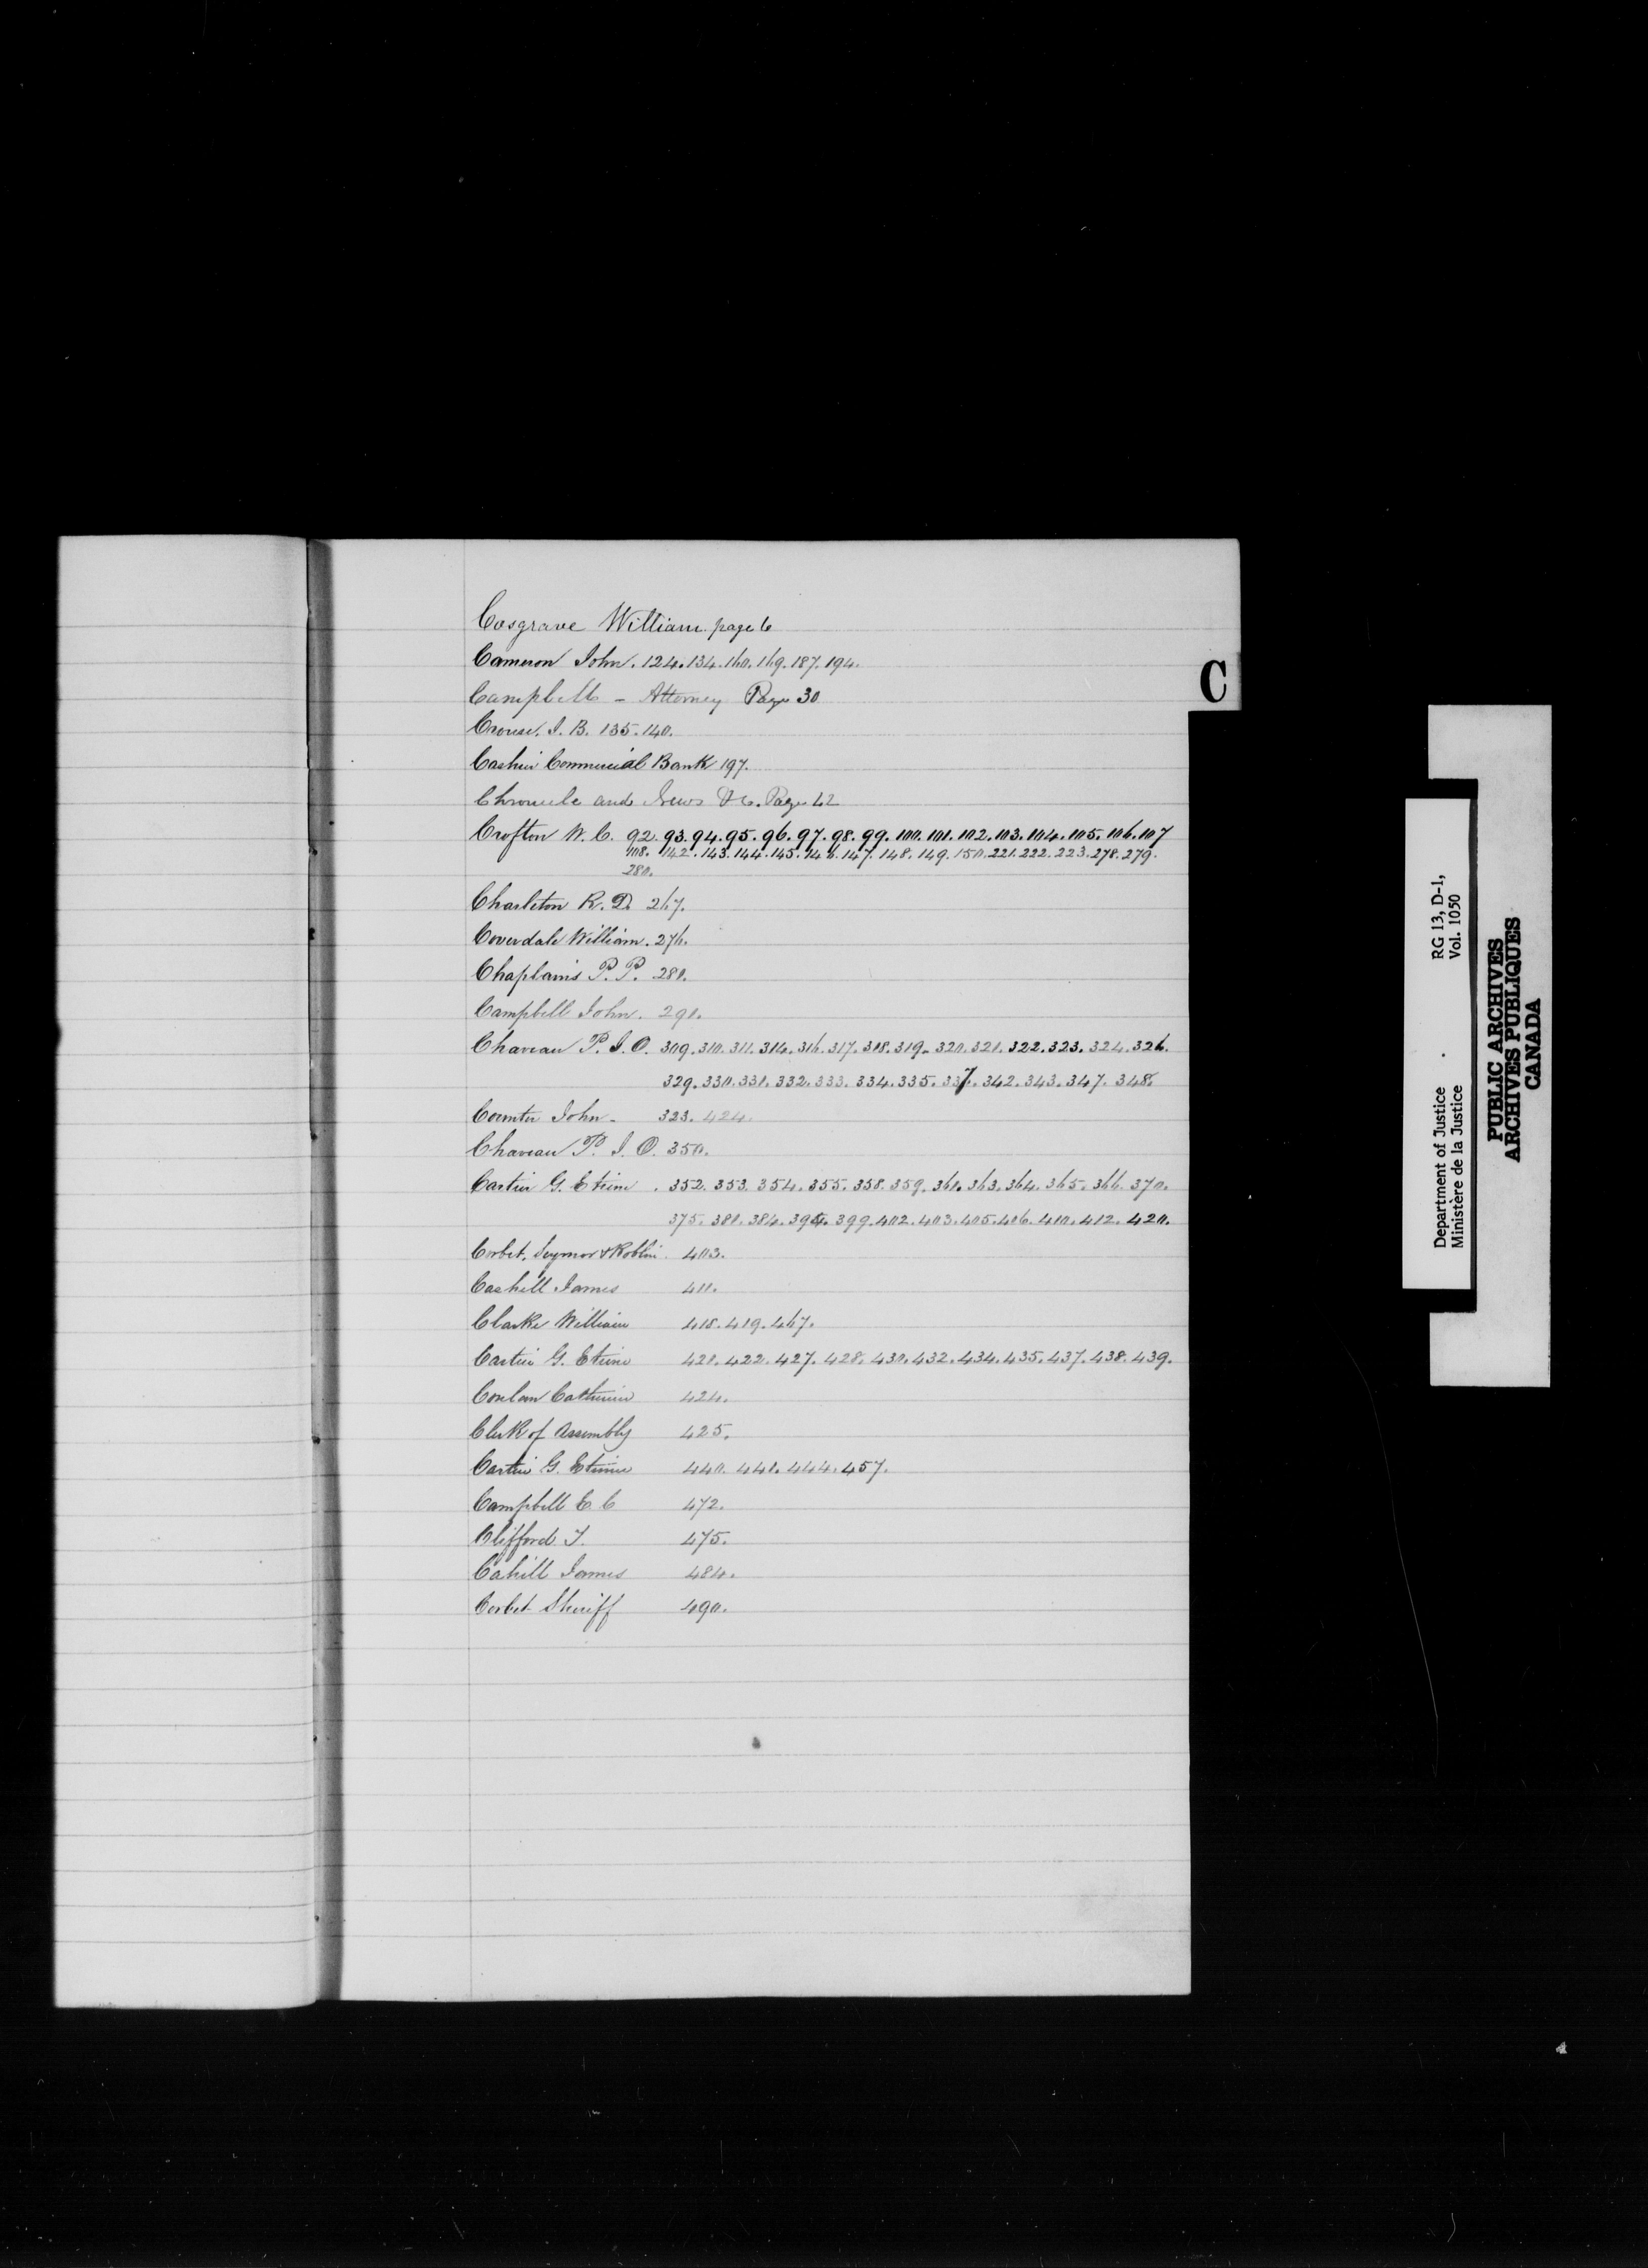 Cosgrave William page 6
Cameron John. 124. 134. 160. 169. 187. 194.
Campbell - Attorney Page 30
Crouse. J. B. 135. 140.
Cashier Commercial Bank 197.
Chronicle and News &c. Page 42
Crofton W. C. 92. 93. 94. 95. 96. 97. 98. 99. 100. 101. 102. 103. 104. 105. 106. 107
108. 142. 143. 144. 145. 146. 147. 148. 149. 150. 221. 222. 223. 278. 279.
280.
Charleton R. D. 267.
Coverdale William. 276.
Chaplains P. P. 280.
Campbell John. 290.
Chaveau P. J. O. 309. 310. 311. 314. 316. 317. 318. 319. 320. 321. 322. 323. 324. 326.
329. 330. 331. 332. 333. 334. 335. 337. 342. 343. 347. 348.
Counter John - 323. 424.
Chaveau P. J. O. 350.
Cartier G. Etiene. 352. 353. 354. 355. 358. 359. 361. 363. 364. 365. 366. 370.
375. 381. 384. 399. 402. 403. 405. 406. 410. 412. 420.
Corbet, Seymor & Roblin 403.
Cashill James 411.
Clarke William 418. 419. 467.
Cartier G. Etiene 421. 422. 427. 428. 430. 432. 434. 435. 437. 438. 439.
Conlan Catherine 424.
Clerk of Assembly 425.
Cartier G. Etienne 440. 441. 444. 457.
Campbell E. C 472.
Clifford T. 475.
Cahill James 484.
Corbet Sheriff 490.
C
Department of Justice RG 13, D-1,
Ministère de la Justice Vol. 1050
PUBLIC ARCHIVES
ARCHIVES PUBLIQUES
CANADA